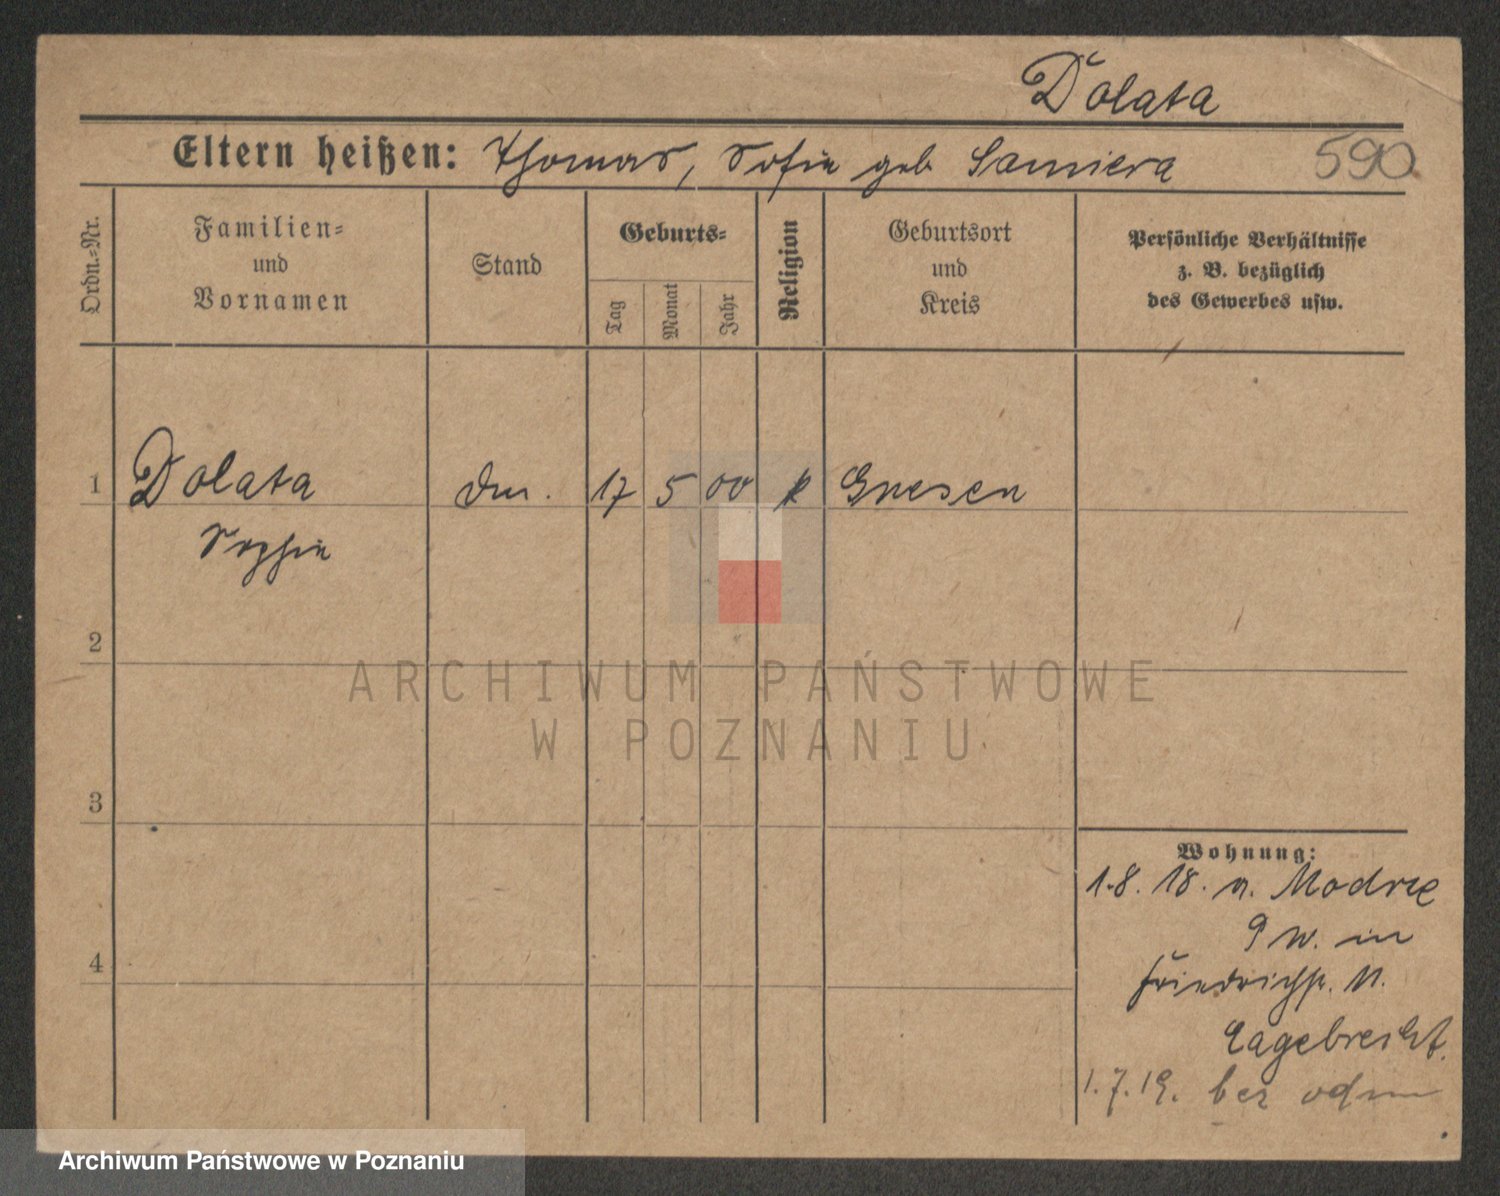 Dolata
Eltern heißen: Thomas, Sofie geb Samiera
590
Ordn.=Nr.
Familien=
und
Vornamen
Stand
Geburts=
Tag
Monat
Jahr
Religion
Geburtsort
und
Kreis
Persönliche Verhältnisse
z. B. bezüglich
des Gewerbes usw.
1 Dolata 17 5 00 k Gnesen
Sophie
2
3
4
Wohnung:
1.8.18. n. Modrze
in
Friedrichstr. 11.
1.7.19. bei
ARCHIWUM PAŃSTWOWE
W POZNANIU
Archiwum Państwowe w Poznaniu